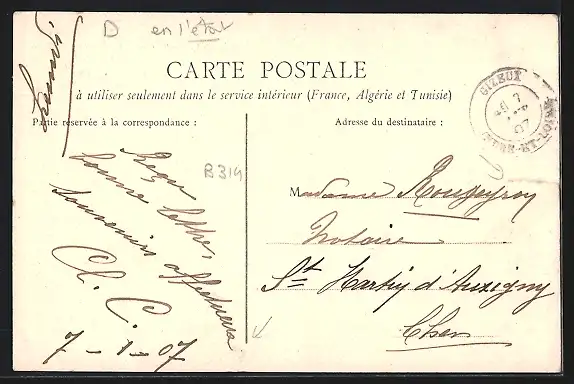 D en l'état
CARTE POSTALE
à utiliser seulement dans le service intérieur (France, Algérie et Tunisie)
Partie réservée à la correspondance :
Adresse du destinataire :
GIZEUX
7
07
INDRE-ET-LOIRE
B314
Reçu
bonne lettre,
souvenirs affectueux
Cl. C.
7-1-07
Madame Rougeyron
Notaire
St Martin d'Auxigny
Cher